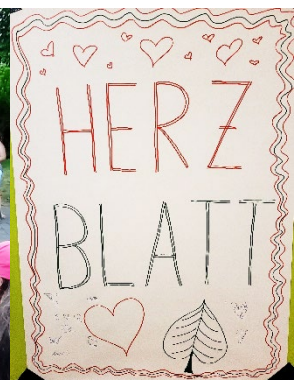 HERZ
BLATT